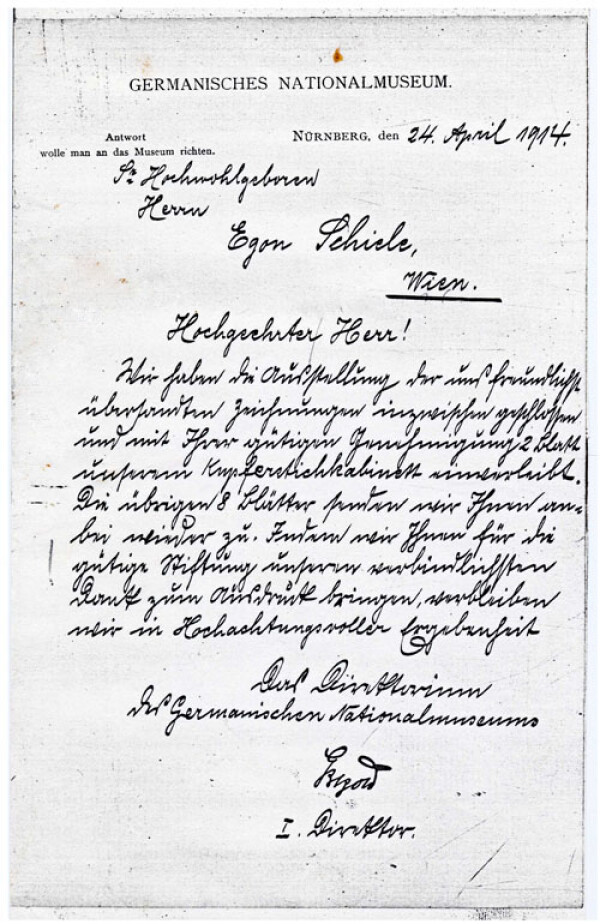 GERMANISCHES NATIONALMUSEUM.
Antwort
wolle man an das Museum richten.
NÜRNBERG, den 24. April 1914.
Sr. Hochwohlgeboren
Herrn
Egon Schiele,
Wien.
Hochgeehrter Herr!
Wir haben die Ausstellung der uns freundlichst
übersandten Zeichnungen inzwischen geschlossen
und mit Ihrer gütigen Genehmigung 2 Blatt
unserem Kupferstichkabinett einverleibt.
Die übrigen 8 Blätter senden wir Ihnen an-
bei wieder zu. Indem wir Ihnen für die
gütige Stiftung unseren verbindlichsten
Dank zum Ausdruck bringen, verbleiben
wir in Hochachtungsvoller Ergebenheit
Das Direktorium
des Germanischen Nationalmuseums
I. Direktor.